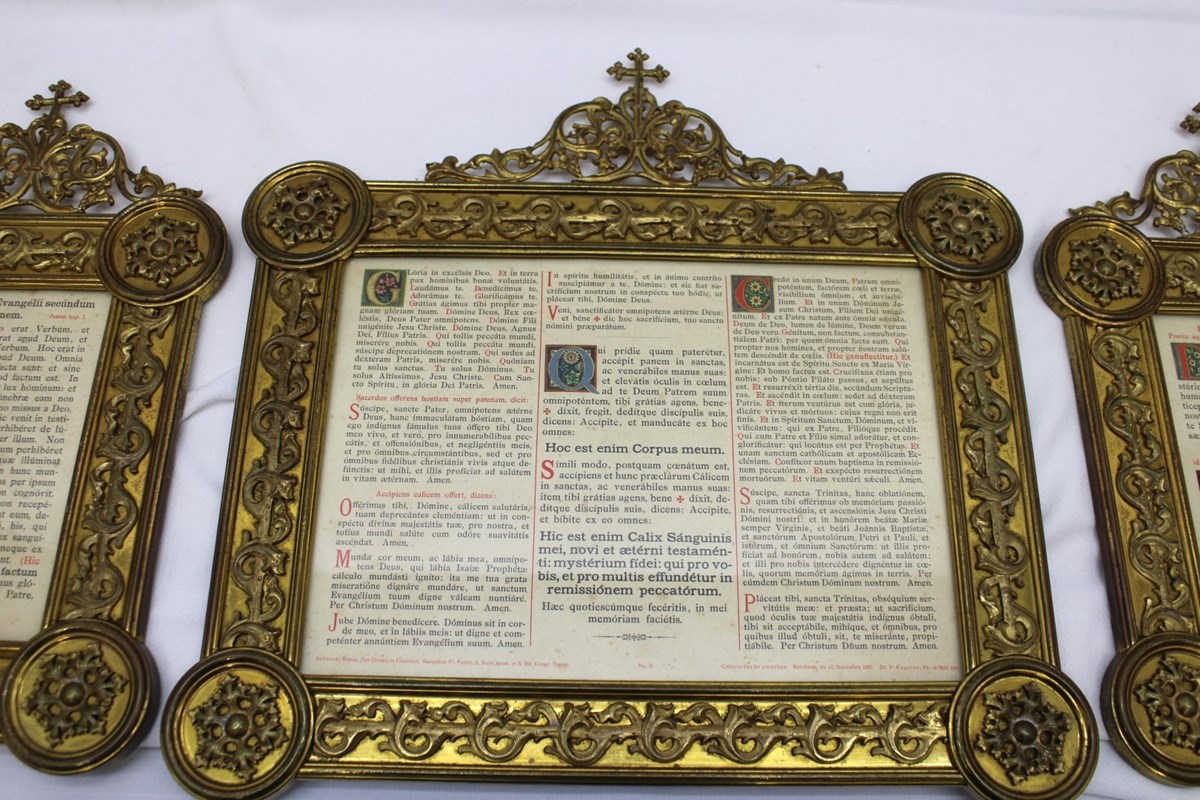 Evangélii secúndum
nem. Joann. cap. I.
erat Verbum, et
erat apud Deum, et
Verbum. Hoc erat in
ud Deum. Omnia
acta sunt: et sine
d factum est. In
lux hóminum: et
énebræ eam non
no missus a Deo,
ic venit in testi-
erhibéret de lú-
er illum. Non
um perhibéret
quæ illúminat
in hunc mun-
us per ipsum
on cognóvit.
non recepé-
nt eum, de-
i, his, qui
ex sanguí-
neque ex
nt. (Hic
factum
us gló-
Patre,
Glória in excélsis Deo. Et in terra
pax homínibus bonæ voluntátis.
Laudámus te. Benedícimus te.
Adorámus te. Glorificámus te.
Grátias ágimus tibi propter ma-
gnam glóriam tuam. Dómine Deus, Rex cœ-
léstis, Deus Pater omnípotens. Dómine Fili
unigénite Jesu Christe. Dómine Deus, Agnus
Dei, Fílius Patris. Qui tollis peccáta mundi,
miserére nobis. Qui tollis peccáta mundi,
súscipe deprecatiónem nostram. Qui sedes ad
déxteram Patris, miserére nobis. Quóniam
tu solus sanctus. Tu solus Dóminus. Tu
solus Altíssimus, Jesu Christe. Cum San-
cto Spíritu, in glória Dei Patris. Amen.
Sacerdos offerens hostiam super patenam, dicit:
Súscipe, sancte Pater, omnípotens ætérne
Deus, hanc immaculátam hóstiam, quam
ego indígnus fámulus tuus óffero tibi Deo
meo vivo, et vero, pro innumerabílibus pec-
cátis, et offensiónibus, et negligéntiis meis,
et pro ómnibus circumstántibus, sed et pro
ómnibus fidélibus christiánis vivis atque de-
fúnctis: ut mihi, et illis profíciat ad salútem
in vitam ætérnam. Amen.
Accipiens calicem offert, dicens:
Offérimus tibi, Dómine, cálicem salutáris,
tuam deprecántes cleméntiam: ut in con-
spéctu divínæ majestátis tuæ, pro nostra, et
totíus mundi salúte cum odóre suavitátis
ascéndat. Amen.
Munda cor meum, ac lábia mea, omnípo-
tens Deus, qui lábia Isaíæ Prophétæ
cálculo mundásti igníto: ita me tua grata
miseratióne dignáre mundáre, ut sanctum
Evangélium tuum digne váleam nuntiáre.
Per Christum Dóminum nostrum. Amen.
Jube Dómine benedícere. Dóminus sit in cor-
de meo, et in lábiis meis: ut digne et com-
peténter annúntiem Evangélium suum. Amen.
In spíritu humilitátis, et in ánimo contríto
suscipiámur a te, Dómine: et sic fiat sa-
crifícium nostrum in conspéctu tuo hódie, ut
pláceat tibi, Dómine Deus.
Veni, sanctificátor omnípotens ætérne Deus:
et béne ✠ dic hoc sacrifícium, tuo sancto
nómini præparátum.
Qui prídie quam paterétur,
accépit panem in sanctas,
ac venerábiles manus suas:
et elevátis óculis in cœlum
ad te Deum Patrem suum
omnipoténtem, tibi grátias agens, bene-
✠ díxit, fregit, dedítque discípulis suis,
dicens: Accípite, et manducáte ex hoc
omnes:
Hoc est enim Corpus meum.
Símili modo, postquam cœnátum est,
accípiens et hunc præclárum Cálicem
in sanctas, ac venerábiles manus suas:
item tibi grátias agens, bene ✠ díxit, de-
dítque discípulis suis, dicens: Accípite,
et bíbite ex eo omnes:
Hic est enim Calix Sánguinis
mei, novi et ætérni testamén-
ti: mystérium fídei: qui pro vo-
bis, et pro multis effundétur in
remissiónem peccatórum.
Hæc quotiescúmque fecéritis, in mei
memóriam faciétis.
Credo in unum Deum, Patrem omni-
poténtem, factórem cœli et terræ,
visibílium ómnium, et invisibí-
lium. Et in unum Dóminum Je-
sum Christum, Fílium Dei unigé-
nitum. Et ex Patre natum ante ómnia sǽcula.
Deum de Deo, lumen de lúmine, Deum verum
de Deo vero. Génitum, non factum, consubstan-
tiálem Patri: per quem ómnia facta sunt. Qui
propter nos hómines, et propter nostram salú-
tem descéndit de cœlis. (Hic genuflectitur.) Et
incarnátus est de Spíritu Sancto ex María Vír-
gine: Et homo factus est. Crucifíxus étiam pro
nobis: sub Póntio Piláto passus, et sepúltus
est. Et resurréxit tértia die, secúndum Scriptú-
ras. Et ascéndit in cœlum: sedet ad déxteram
Patris. Et íterum ventúrus est cum glória, ju-
dicáre vivos et mórtuos: cujus regni non erit
finis. Et in Spíritum Sanctum, Dóminum, et vi-
vificántem: qui ex Patre, Filióque procédit.
Qui cum Patre et Fílio simul adorátur, et con-
glorificátur: qui locútus est per Prophétas. Et
unam sanctam cathólicam et apostólicam Ec-
clésiam. Confíteor unum baptísma in remissió-
nem peccatórum. Et exspécto resurrectiónem
mortuórum. Et vitam ventúri sǽculi. Amen.
Súscipe, sancta Trínitas, hanc oblatiónem,
quam tibi offérimus ob memóriam passió-
nis, resurrectiónis, et ascensiónis Jesu Christi
Dómini nostri: et in honórem beátæ Maríæ
semper Vírginis, et beáti Joánnis Baptístæ,
et sanctórum Apostolórum Petri et Pauli, et
istórum, et ómnium Sanctórum: ut illis pro-
fíciat ad honórem, nobis autem ad salútem:
et illi pro nobis intercédere dignéntur in cœ-
lis, quorum memóriam ágimus in terris. Per
eúmdem Christum Dóminum nostrum. Amen.
Pláceat tibi, sancta Trínitas, obséquium ser-
vitútis meæ: et præsta; ut sacrifícium,
quod óculis tuæ majestátis indígnus óbtuli,
tibi sit acceptábile, mihíque, et ómnibus, pro
quibus illud óbtuli, sit, te miseránte, propi-
tiábile. Per Christum Dñum nostrum. Amen.
No. 3.